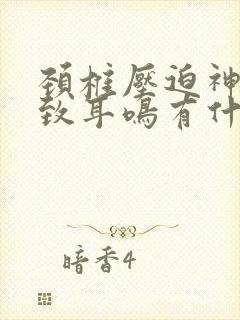 颈椎压迫神
致耳鸣有什
暗香4